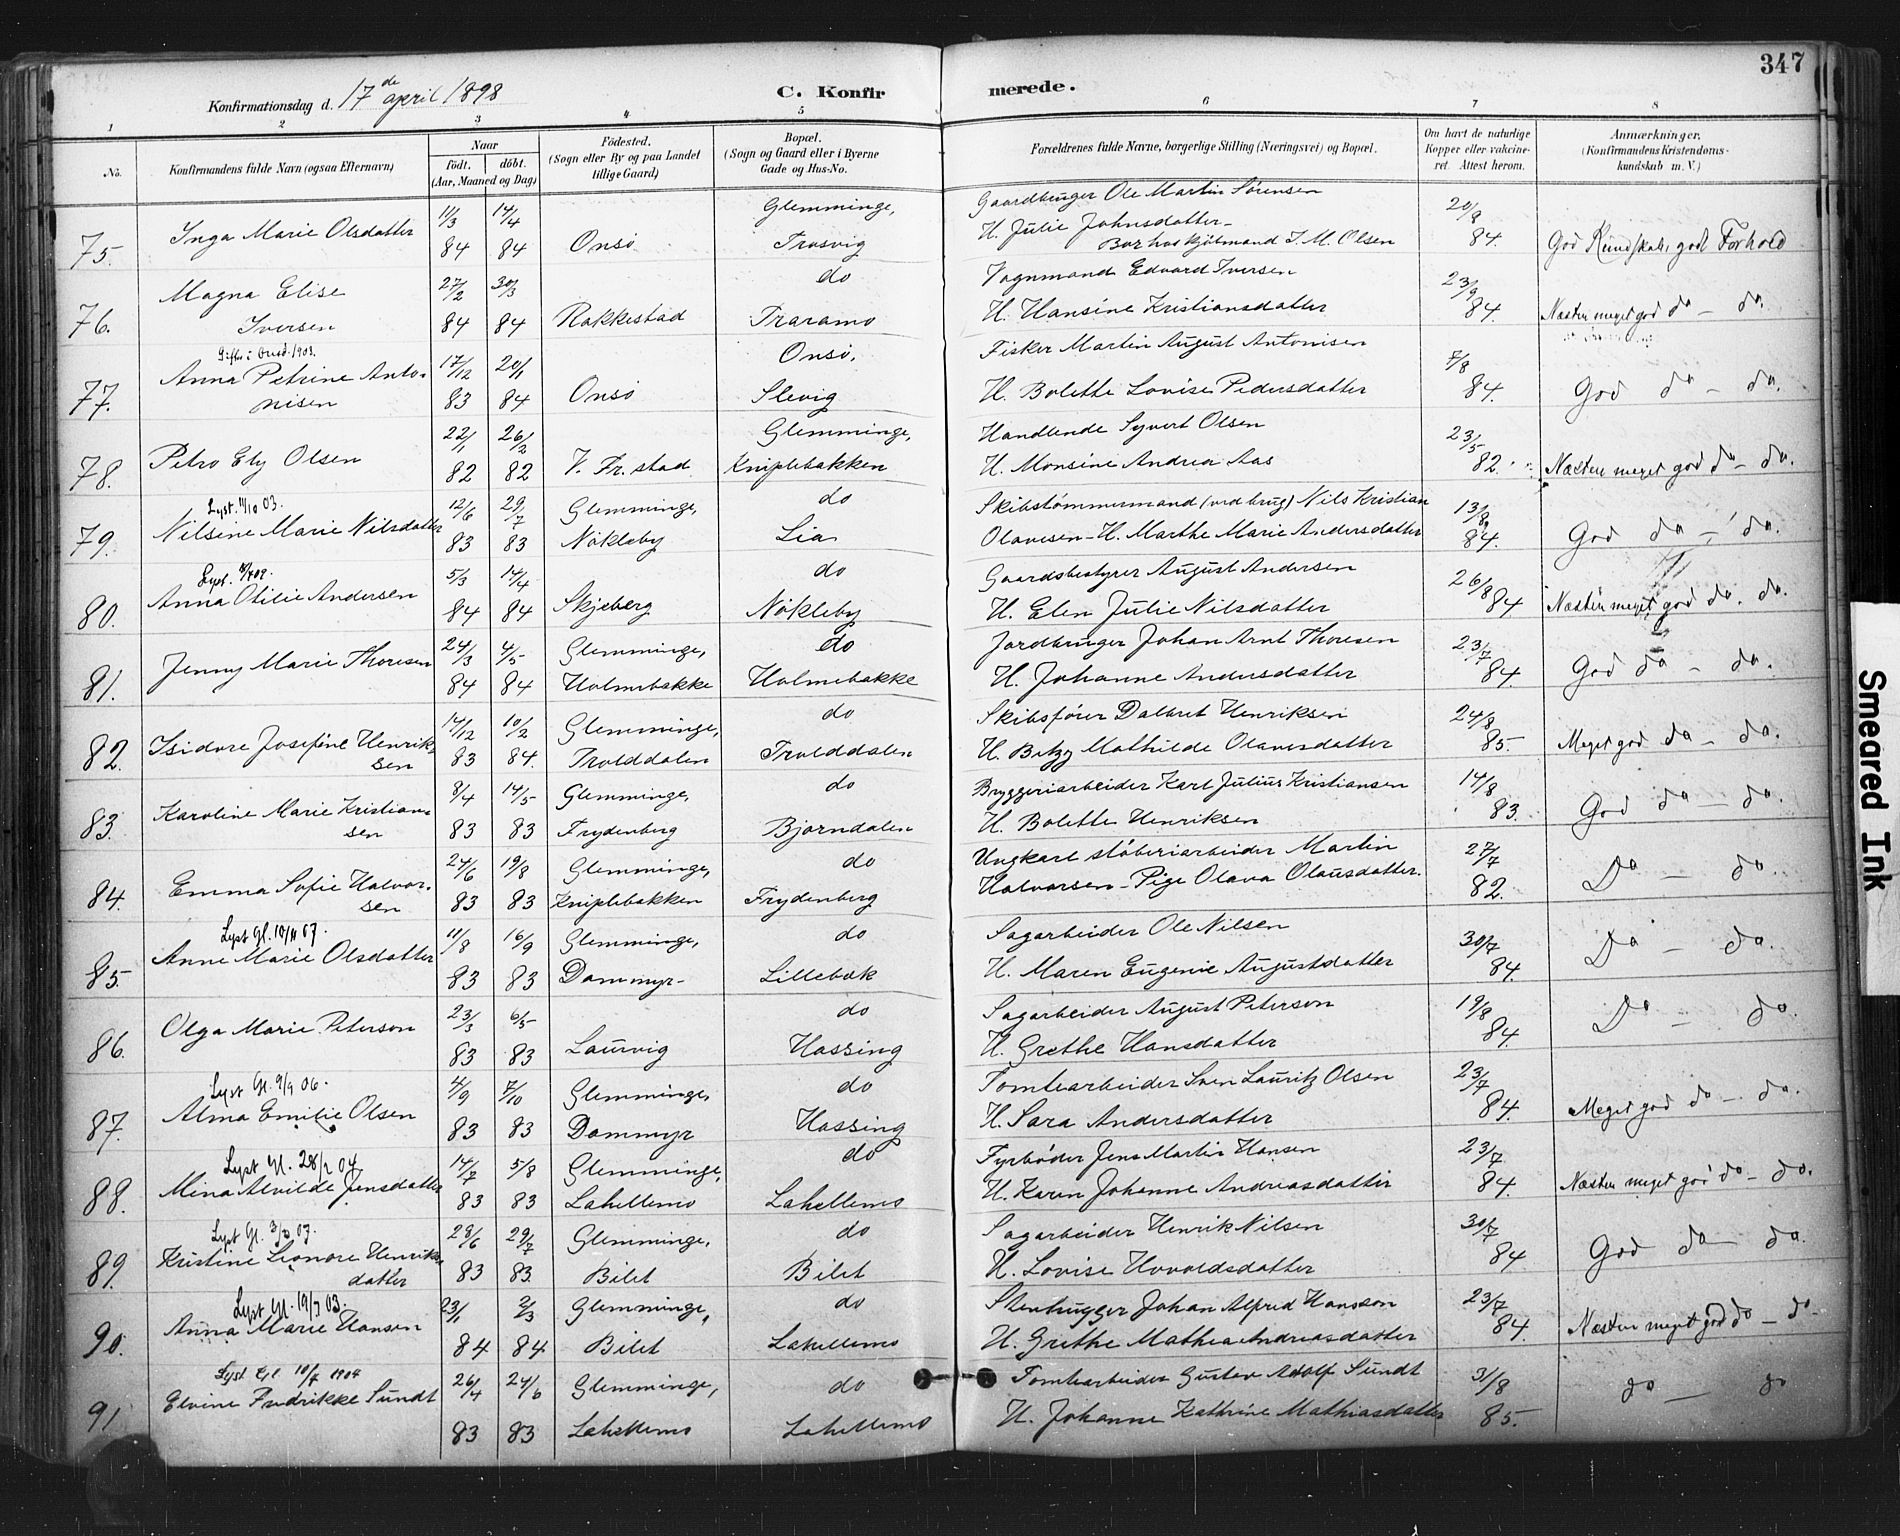 347
Konfirmationsdag d. 17de april 1898
C. Konfirmerede.
1 2 3 4 5 6 7 8
No.
Konfirmandens fulde Navn (ogsaa Efternavn)
Naar
födt. döbt.
(Aar, Maaned og Dag)
Födested.
(Sogn eller By og paa Landet
tillige Gaard)
Bopæl.
(Sogn og Gaard eller i Byerne
Gade og Hus-No.
Forældrenes fulde Navne, borgerlige Stilling (Næringsvei) og Bopæl.
Om havt de naturlige
Kopper eller vaccineret. Attest herom.
Anmærkninger.
(Konfirmandens Kristendomskundskab m. V.)
75. Inga Marie Olsdatter 11/3 84 14/4 84 Onsö Glemminge, Trosvig
Gaardbruger Ole Martin Sörensen
H. Julie Johnsdatter -
Bor hos Kjölmand J. M. Olsen
20/9 84. God Kundskab, godt Forhold
76. Magna Elise Iversen 27/2 84 30/3 84 Rakkestad do Traramo
Vognmand Edvard Iversen
H. Hansine Kristiansdatter
23/9 84. Næsten meget god do - do.
Gift i Onsö 1903.
77. Anna Petrine Antonisen 17/12 83 20/1 84 Onsö Onsö, Slevig
Fisker Martin August Antonisen
H. Bolette Lovise Pedersdatter
7/8 84. God do - do.
78. Petro Ely Olsen 22/1 82 26/2 82 V. Fr.stad Glemminge, Kniplebakken
Handlende Syvert Olsen
H. Monsine Andrea Aas
23/5 82. Næsten meget god do - do.
Lyst. 11/10 03.
79. Nilsine Marie Nilsdatter 12/6 83 29/7 83 Glemminge, Nökleby do Lia
Skibstömmermand (ved brug) Nils Kristian
Olavesen - H. Marthe Marie Andersdatter
13/8 84. God do - do.
Lyst.
80. Anna Otilie Andersen 5/3 84 14/4 84 Skjeberg do Nökleby
Gaardsbestyrer August Andersen
H. Elen Julie Nilsdatter
26/8 84 Næsten meget god do. do.
81. Jenny Marie Thoresen 24/3 84 4/5 84 Glemminge, Holmebakke do Holmebakke
Jordbruger Johan Arnt Thoresen
H. Johanne Andersdatter
23/7 84. God do - do.
82. Isidore Josefine Henriksen 14/12 83 10/2 84. Glemminge, Trolddalen do Trolddalen
Skibsförer Dalbret Henriksen
H. Betzy Mathilde Olavesdatter
24/8 85. Meget god do - do.
83. Karoline Marie Kristiansen 8/4 83 14/5 83 Glemminge, Frydenberg do Bjorndalen
Bryggeriarbeider Karl Julius Kristiansen
H. Bolette Henriksen
14/8 83. God do - do.
84. Emma Sofie Halvorsen 24/6 83 19/8 83 Glemminge, Kniplebakken do Frydenberg
Ungkarl stöberiarbeider Martin
Halvorsen - Pige Olava Olausdatter.
27/7 82. Do - do.
Lyst Gl. 10/11 07.
85. Anne Marie Olsdatter 11/8 83 16/9 83 Glemminge, Dammyr- do Lillebæk
Sagarbeider Ole Nilsen
H. Maren Eugenie Augustdatter
30/7 84. Do - do.
86. Olga Marie Peterson 23/3 83 6/5 83 Laurvig do Hassing
Sagarbeider August Peterson
H. Grethe Hansdatter
19/8 84. Do - do.
Lyst Gl. 9/9 06.
87. Alma Emilie Olsen 4/9 83 7/10 83 Glemminge, Dammyr do Hassing
Tomtearbeider Sven Lauritz Olsen
H. Sara Andersdatter
23/7 84. Meget god do - do.
Lyst Gl. 28/2 04
88. Mina Alvilde Jensdatter 14/7 83 5/8 83 Glemminge, Lahellemo do Lahellemo
Fyrböder Jens Martin Hansen
H. Karen Johanne Andreasdatter
23/7 84. Næsten meget god do - do.
Lyst Gl. 07.
89. Kristine Leonore Henriksdatter 28/6 83 29/7 83. Glemminge, Bilet do Bilet
Sagarbeider Henrik Nilsen
H. Lovise Hvoldsdatter
30/7 84 God do - do.
Lyst Gl. 19/7 03.
90. Anna Marie Hansen 23/1 84 2/3 84 Glemminge, Bilet do Lahellemo
Stenhugger Johan Alfred Hansson
H. Grethe Mathea Andreasdatter
23/7 84. Næsten meget god do - do-
Lyst Gl. 10/7 1904
91. Elvine Fredrikke Sundt 26/4 83 24/6 83 Glemminge, Lahellemo do Lahellemo
Tomtearbeider Gustav Adolf Sundt
H. Johanne Kathrine Mathiasdatter
3/8 85. do - do
Smeared Ink